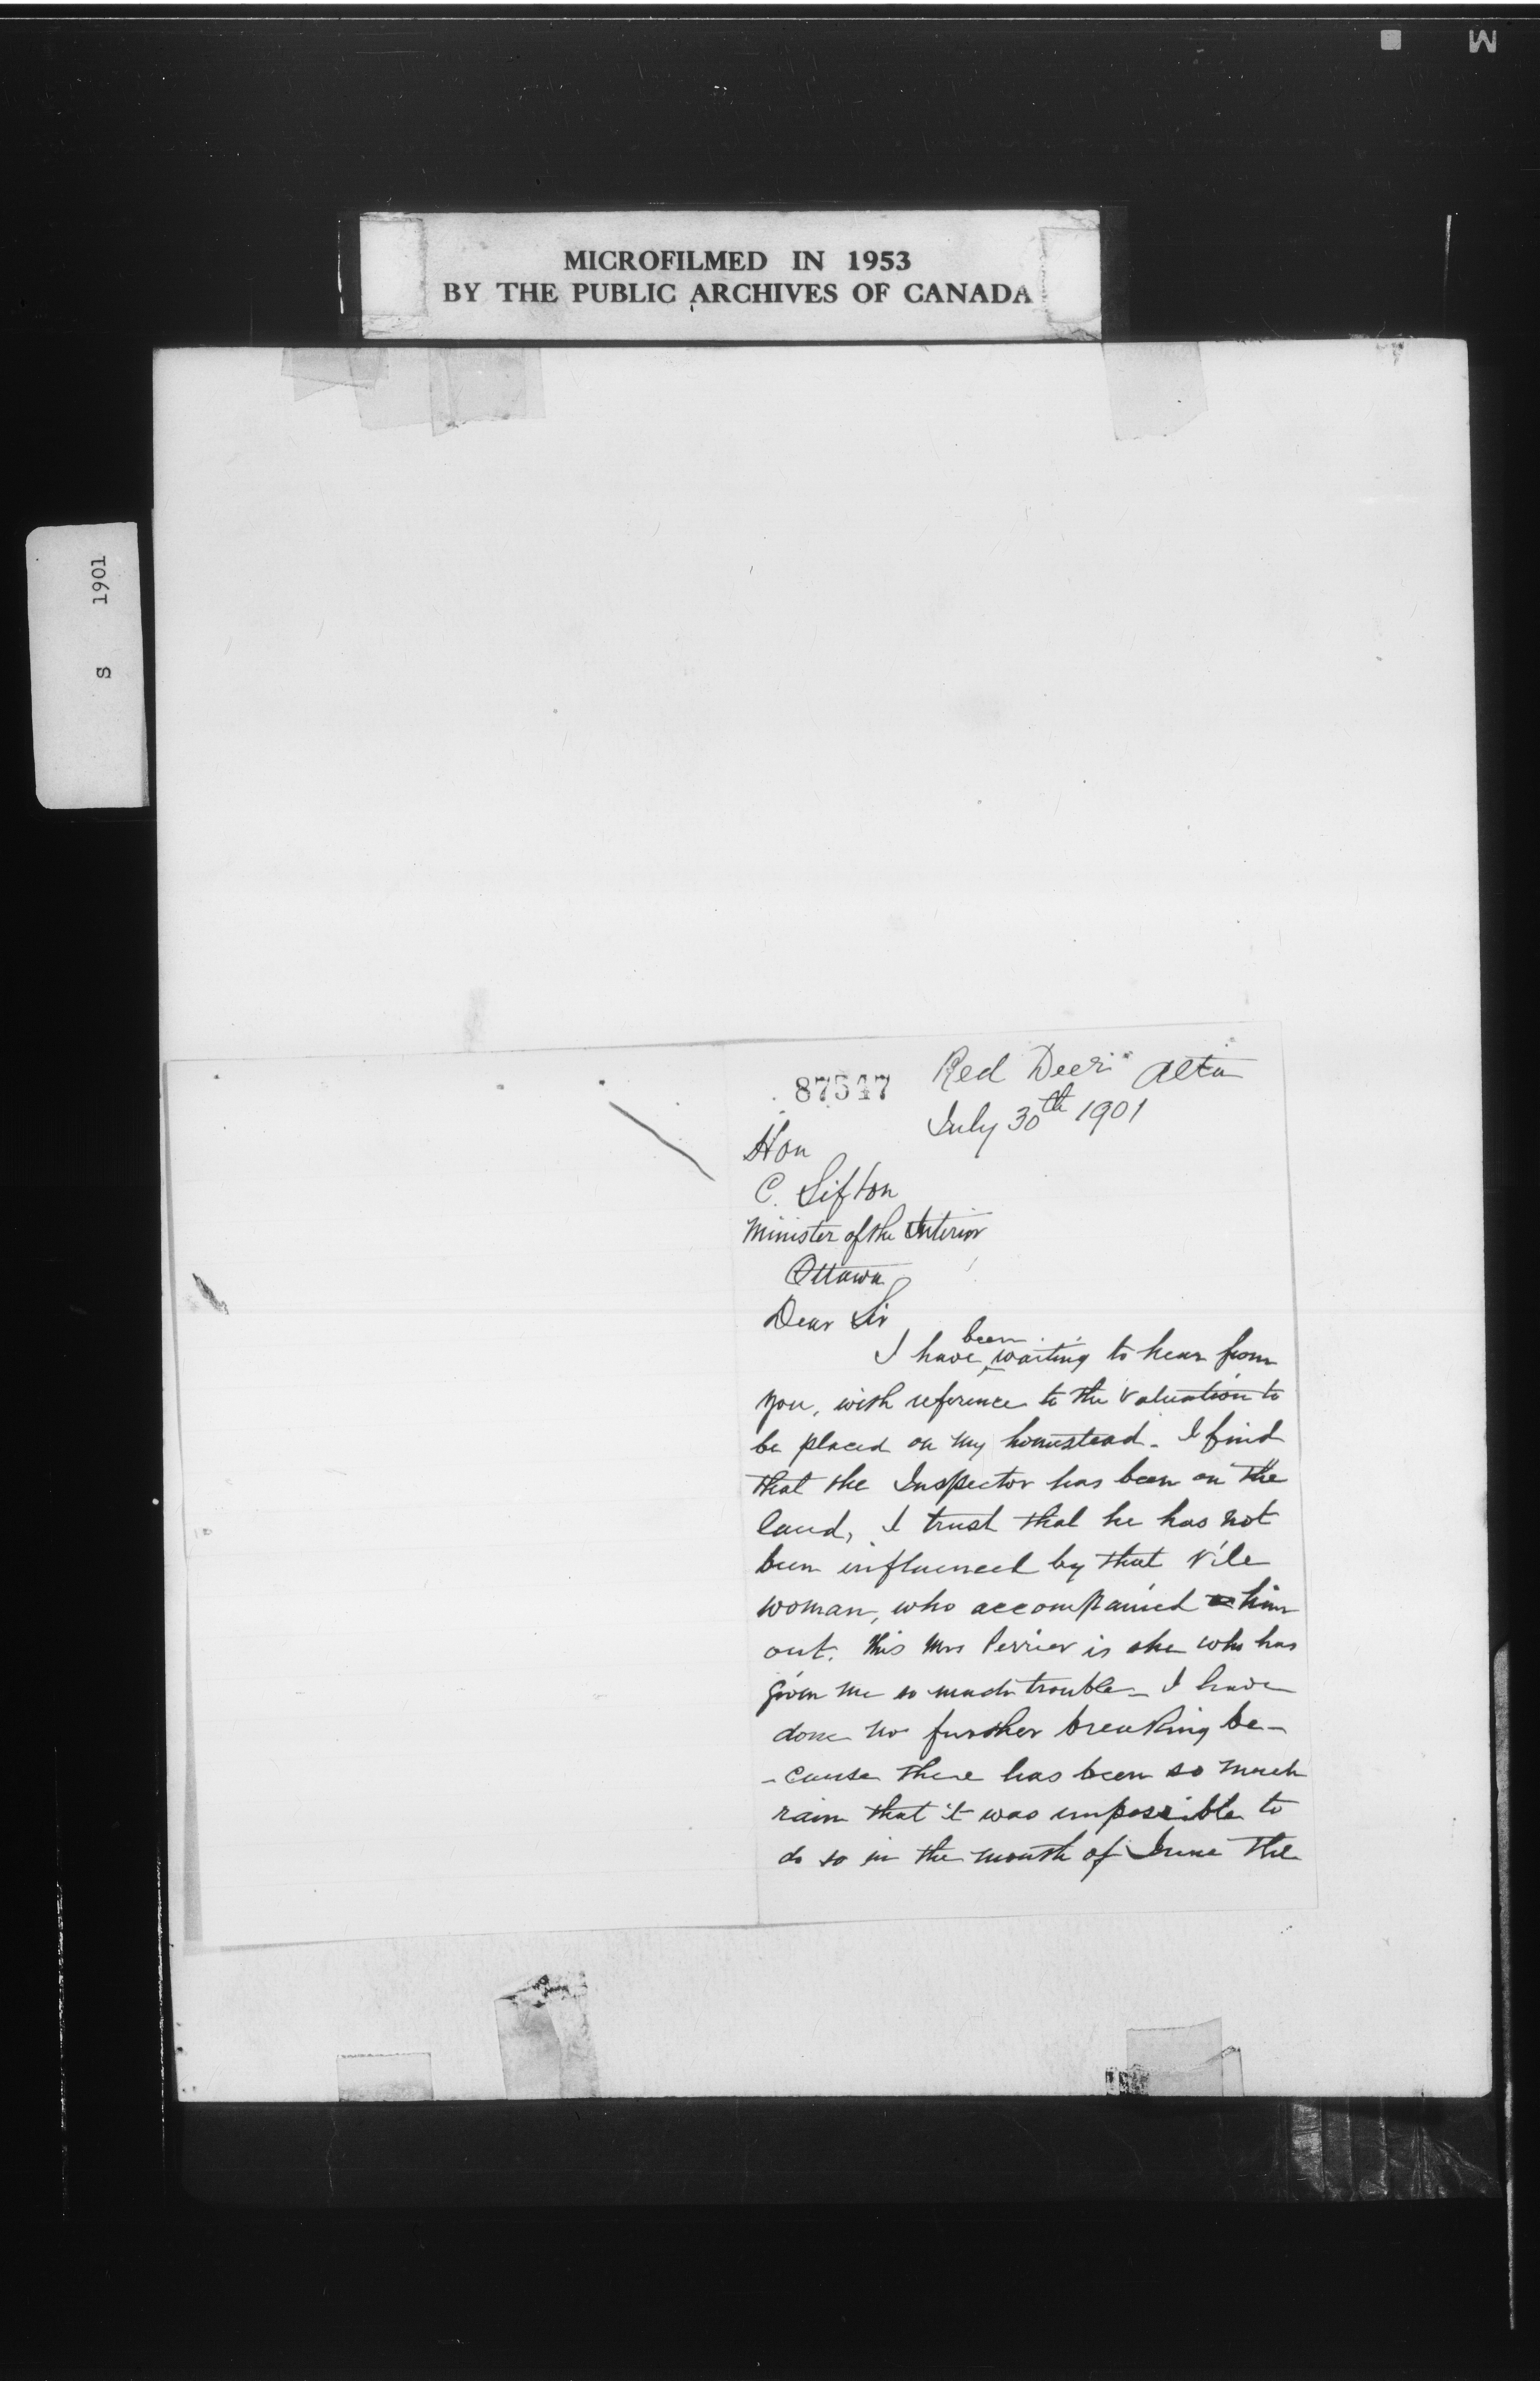 M
MICROFILMED IN 1953
BY THE PUBLIC ARCHIVES OF CANADA
S 1901
87547
Red Deer Alta
July 30th 1901
Hon
C. Sifton
Minister of the Interior
Ottawa
Dear Sir
I have been waiting to hear from
you, with reference to the valuation to
be placed on my homestead - I find
that the Inspector has been on the
land, I trust that he has not
been influenced by that vile
woman, who accompanied him
out. This Mrs Perrier is she who has
given me so much trouble - I have
done no further breaking be-
-cause there has been so much
rain that it was impossible to
do so in the month of June the